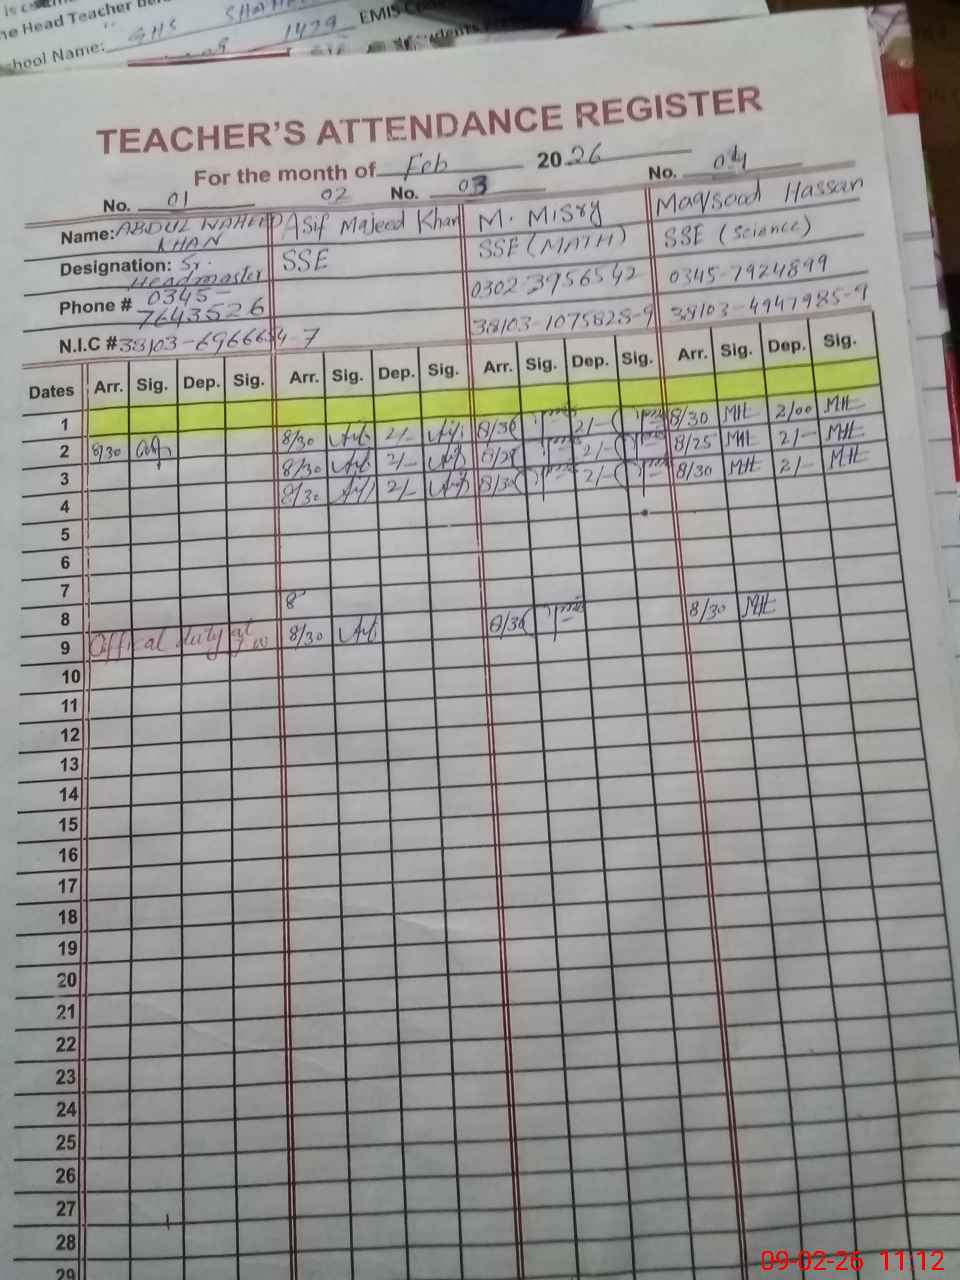 he Head Teacher
chool Name: GHS
1479 EMIS Co
TEACHER'S ATTENDANCE REGISTER
For the month of Feb 2026
No. 01 02 No. 03 No. 04
Name: ABDUL WAHEED KHAN Asif Majeed Khan M. Misry Maqsood Hassan
Designation: Sr. Headmaster SSE SSE (MATH) SSE (Science)
Phone # 0345-7643526 0302-3956542 0345-7924899
N.I.C # 38103-6966664-7 38103-1075828-9 38103-4947985-9
Dates Arr. Sig. Dep. Sig. Arr. Sig. Dep. Sig. Arr. Sig. Dep. Sig. Arr. Sig. Dep. Sig.
1
2 8/30 8/30 2/- 8/30 2/- 8/30 MH 2/00 MH
3 8/30 2/- 2/- 8/25 MH 2/- MH
4 8/30 2/- 8/30 2/- 8/30 MH 2/- MH
5
6
7
8 8
9 Offical duty at 8/30 8/30 8/30 MH
10
11
12
13
14
15
16
17
18
19
20
21
22
23
24
25
26
27
28
29
09-02-26 11:12